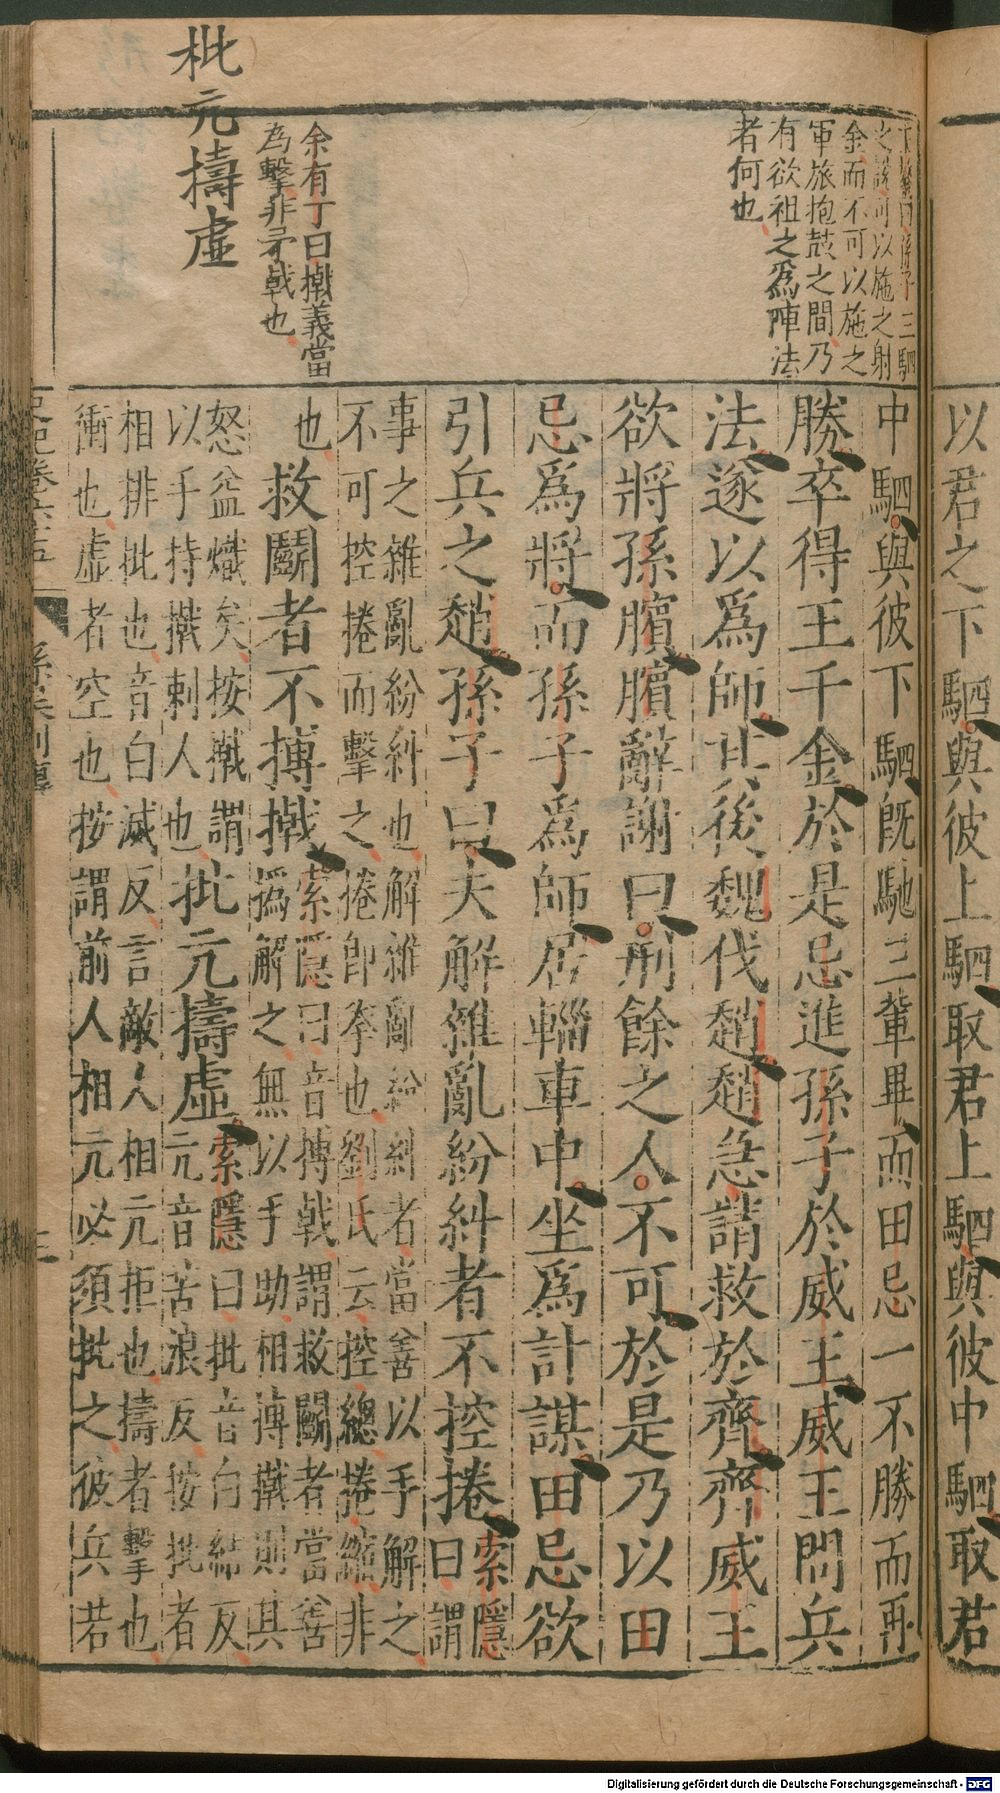 以君之下駟與彼上駟取君上駟與彼中駟取君
中駟與彼下駟既馳三輩畢而田忌一不勝而再
勝卒得王千金於是忌進孫子於威王威王問兵
法遂以為師其後魏伐趙趙急請救於齊齊威王
欲將孫臏臏辭謝曰刑餘之人不可於是乃以田
忌爲將而孫子爲師居輜車中坐爲計謀田忌欲
引兵之趙孫子曰夫解雜亂紛糾者不控捲索隱曰謂
事之雜亂紛糾也解雜亂紛糾者當善以手解之
不可控捲而擊之捲即拳也劉氏云控總捲縮非
也救鬭者不搏撠索隱曰音搏戟謂救鬭者當善
撝解之無以手助相搏撠則其
怒益熾矣按撠謂
以手持撠刺人也批亢擣虛索隱曰批音白結反
亢音苦浪反按批者
相排批也音白滅反言敵人相亢拒也擣者擊也
衝也虛者空也按謂前人相亢必須批之彼兵若
下駟
之說可以施之射
金而不可以施之
軍旅抱鼓之間乃
有欲祖之爲陣法
者何也
余有丁曰撠義當
為擊非矛戟也
批亢擣虛
三
Digitalisierung gefördert durch die Deutsche Forschungsgemeinschaft - DFG